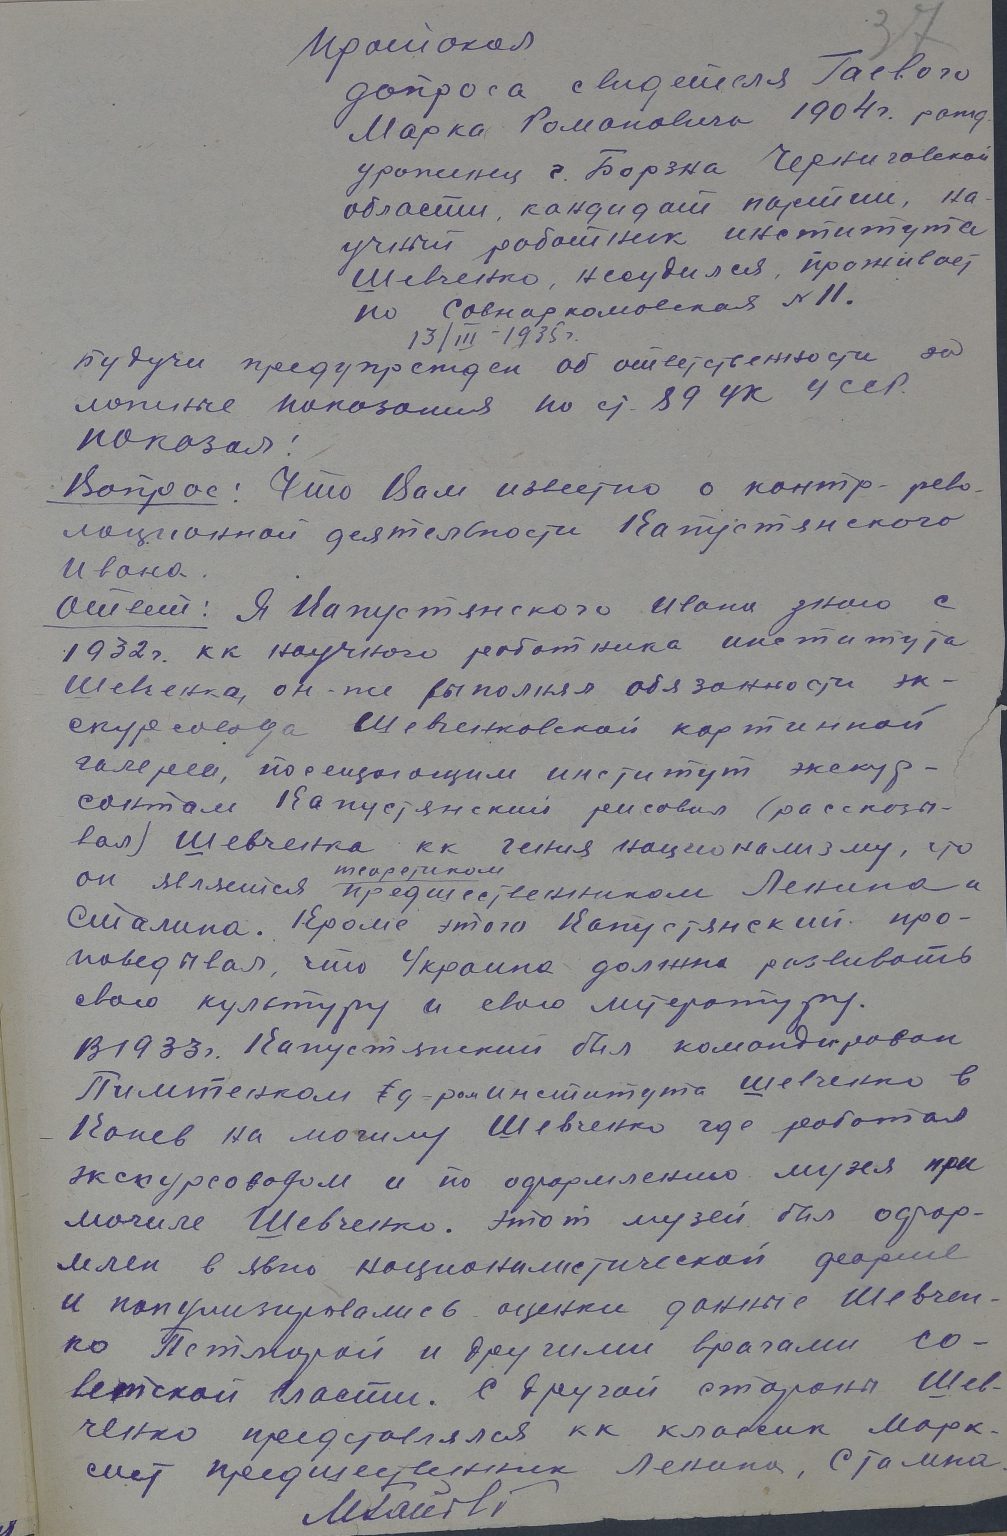 37
Протокол
допроса свидетеля Гаевого
Марка Романовича 1904 г. рожд.
уроженец г. Борзна Черниговской
области, кандидат партии, на-
учный работник института
Шевченко, несудился, проживает
по Совнаркомовская № 11.
13/III-1935г.
Будучи предупрежден об ответственности за
ложные показания по ст. 89 УК УССР.
показал:
Вопрос: Что Вам известно о контр-рево-
люционной деятельности Капустянского
Ивана.
Ответ: Я Капустянского Ивана знаю с
1932 г. кк научного работника института
Шевченка, он-же выполнял обязанности эк-
скурсовода Шевченковской картинной
галереи, посещающим институт экскур-
сантам Капустянский рисовал (рассказы-
вал) Шевченка кк гения национализму, что
теоретиком
он является предшественником Ленина и
Сталина. Кроме этого Капустянский про-
поведывал, что Украина должна развивать
свою культуру и свою литературу.
В 1933 г. Капустянский был командирован
Пилтенком института Шевченко в
Канев на могилу Шевченко где работал
экскурсоводом и по оформлению музея при
могиле Шевченко. Этот музей был офор-
млен в явно националистической форме
и популизировались оценки данные Шевчен-
ко Петлюрой и другими врагами со-
ветской власти. С другой стороны Шев-
ченко представлялся кк классик Марк-
сист предшественник Ленина, Сталина.